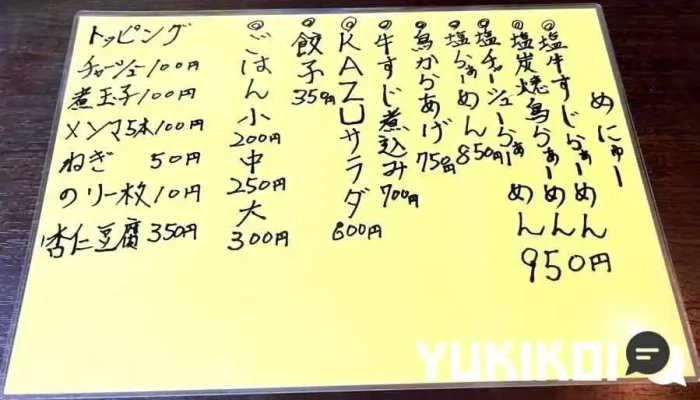 めにゅー
◎塩牛すじらぁーめん
◎塩炭焼鳥らぁーめん
◎塩チャーシューらぁーめん
950円
◎塩らぁーめん 850円
◎鳥からあげ 750円
◎牛すじ煮込み 700円
◎KAZUサラダ 600円
◎餃子 350円
◎ごはん 小 200円 中 250円 大 300円
トッピング
チャーシュー100円
煮玉子100円
メンマ5本100円
ねぎ 50円
のり一枚10円
杏仁豆腐350円
YUKIKOI